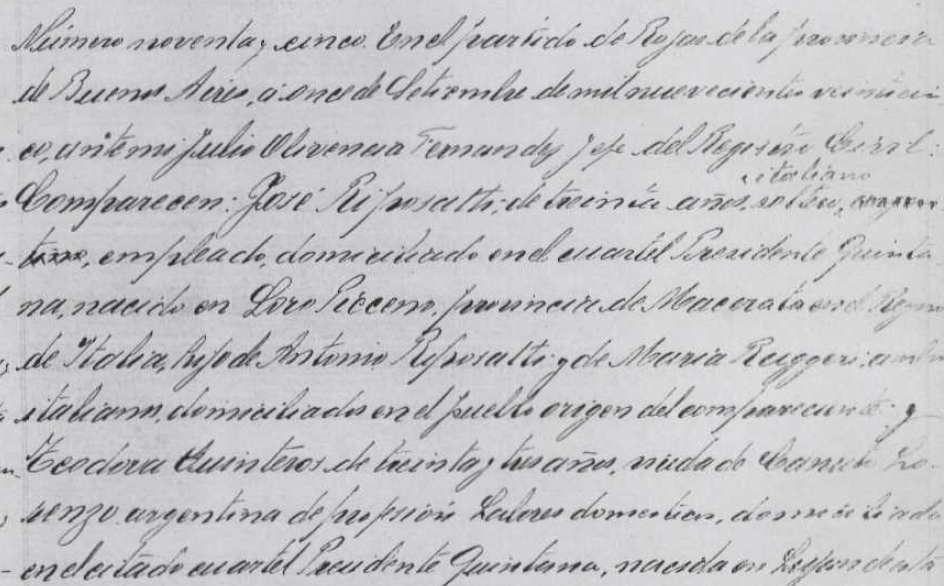 Número noventa y cinco. En el partido de Rojas de la provincia
de Buenos Aires, a once de Setiembre de mil nuevecientos veinticin
co, ante mi Julio Olivencia Fernandez Jefe del Registro Civil:
italiano
Comparecen: José Riposatti, de treinta años, soltero,
empleado, domiciliado en el cuartel Presidente Quinta
na, nacido en Loro Picceno, provincia de Macerata en el Reyno
de Italia, hijo de Antonio Riposatti y de Maria Ruggeri: ambos
italianos, domiciliados en el pueblo origen del compareciente: y
Teodora Quinteros de treinta y tres años, viuda de Canuto Lo-
renzo argentina de profesión Labores domesticas, domiciliada
en el citado cuartel Presidente Quintana, nacida en de esta